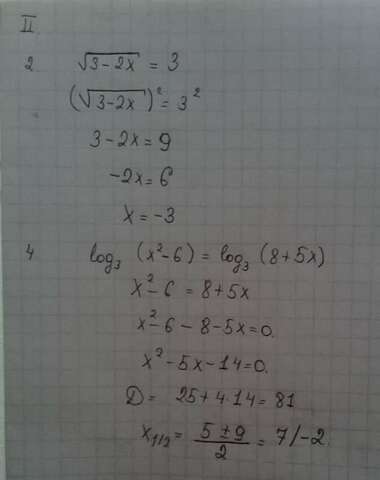 II
2 √(3-2x) = 3
(√(3-2x))² = 3²
3-2x = 9
-2x = 6
x = -3
4 log₃ (x²-6) = log₃ (8+5x)
x²-6 = 8+5x
x²-6-8-5x=0.
x²-5x-14=0.
D = 25+4·14=81
x₁/₂ = (5±9)/2 = 7/-2.